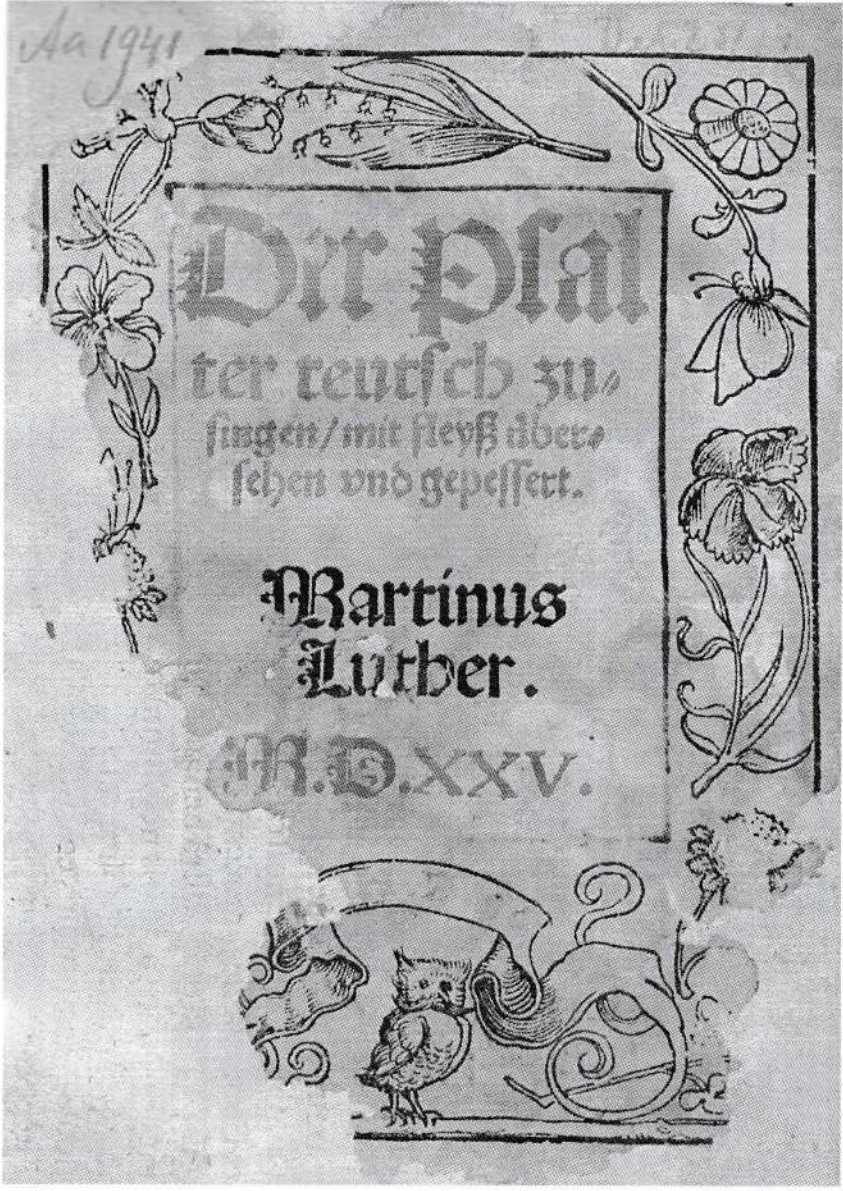 Aa 1941
Der Psal
ter teutsch zu⸗
singen/mit fleyß über⸗
sehen vnd gepessert.
Martinus
Luther.
M.D.XXV.